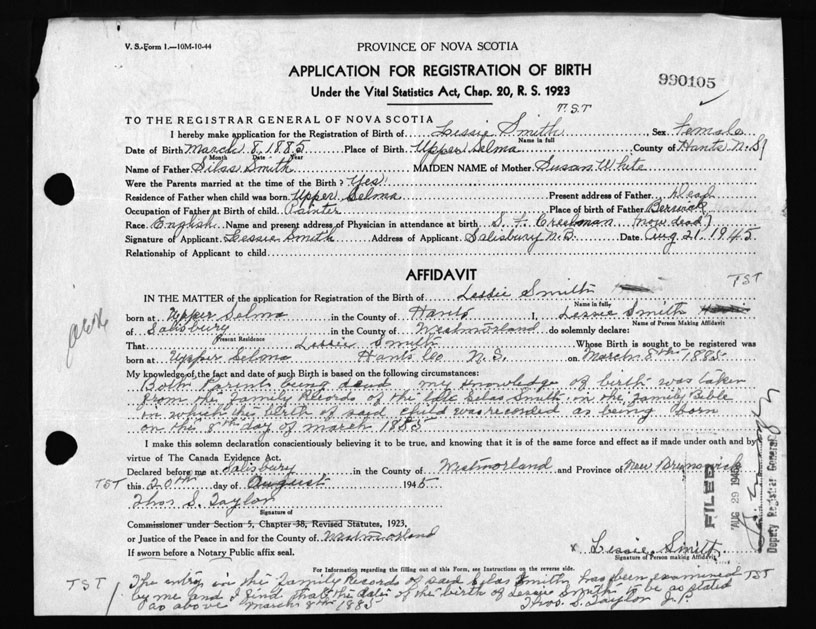 V. S. Form 1.—10M-10-44
PROVINCE OF NOVA SCOTIA
APPLICATION FOR REGISTRATION OF BIRTH
Under the Vital Statistics Act, Chap. 20, R. S. 1923
990105
T.S.T
TO THE REGISTRAR GENERAL OF NOVA SCOTIA
I hereby make application for the Registration of Birth of Lessie Smith, Sex female
Name in full
Date of Birth March 8 1885 Place of Birth Upper Selma County of Hants N.S.
Month Date Year
Name of Father Silas Smith MAIDEN NAME of Mother Susan White
Were the Parents married at the time of the Birth? Yes
Residence of Father when child was born Upper Selma Present address of Father Dead
Occupation of Father at Birth of child Painter Place of birth of Father Berwick
Race English Name and present address of Physician in attendance at birth S. F. Creelman (now dead)
Signature of Applicant Lessie Smith Address of Applicant Salisbury N.B. Date Aug 21 1945
Relationship of Applicant to child
AFFIDAVIT
TST
IN THE MATTER of the application for Registration of the Birth of Lessie Smith
Name in full
born at Upper Selma in the County of Hants I, Lessie Smith
Name of Person Making Affidavit
of Salisbury in the County of Westmorland do solemnly declare:
Present Residence
That Lessie Smith Whose Birth is sought to be registered was
born at Upper Selma Hants Co N.S. on March 8th 1885
My knowledge of the fact and date of such Birth is based on the following circumstances:
Both Parents being dead my knowledge of birth was taken
from the Family Records of the late Silas Smith in the family Bible
in which the birth of said child was recorded as being born
on the 8th day of march 1885
I make this solemn declaration conscientiously believing it to be true, and knowing that it is of the same force and effect as if made under oath and by
virtue of The Canada Evidence Act.
Declared before me at Salisbury in the County of Westmorland and Province of New Brunswick
TST this 20th day of August 1945
Thos S. Taylor
Signature of
Commissioner under Section 5, Chapter 38, Revised Statutes, 1923,
or Justice of the Peace in and for the County of Westmorland
If sworn before a Notary Public affix seal.
x Lessie Smith
Signature of Person making Affidavit
FILED
AUG 29 1945
Deputy Registrar General
For Information regarding the filling out of this Form, see Instructions on the reverse side.
TST / The entry in the family Records of said Silas Smith has been examined TST
by me and I find that the date of the birth of Lessie Smith to be as stated
as above March 8th 1885 Thos. S. Taylor J.P.